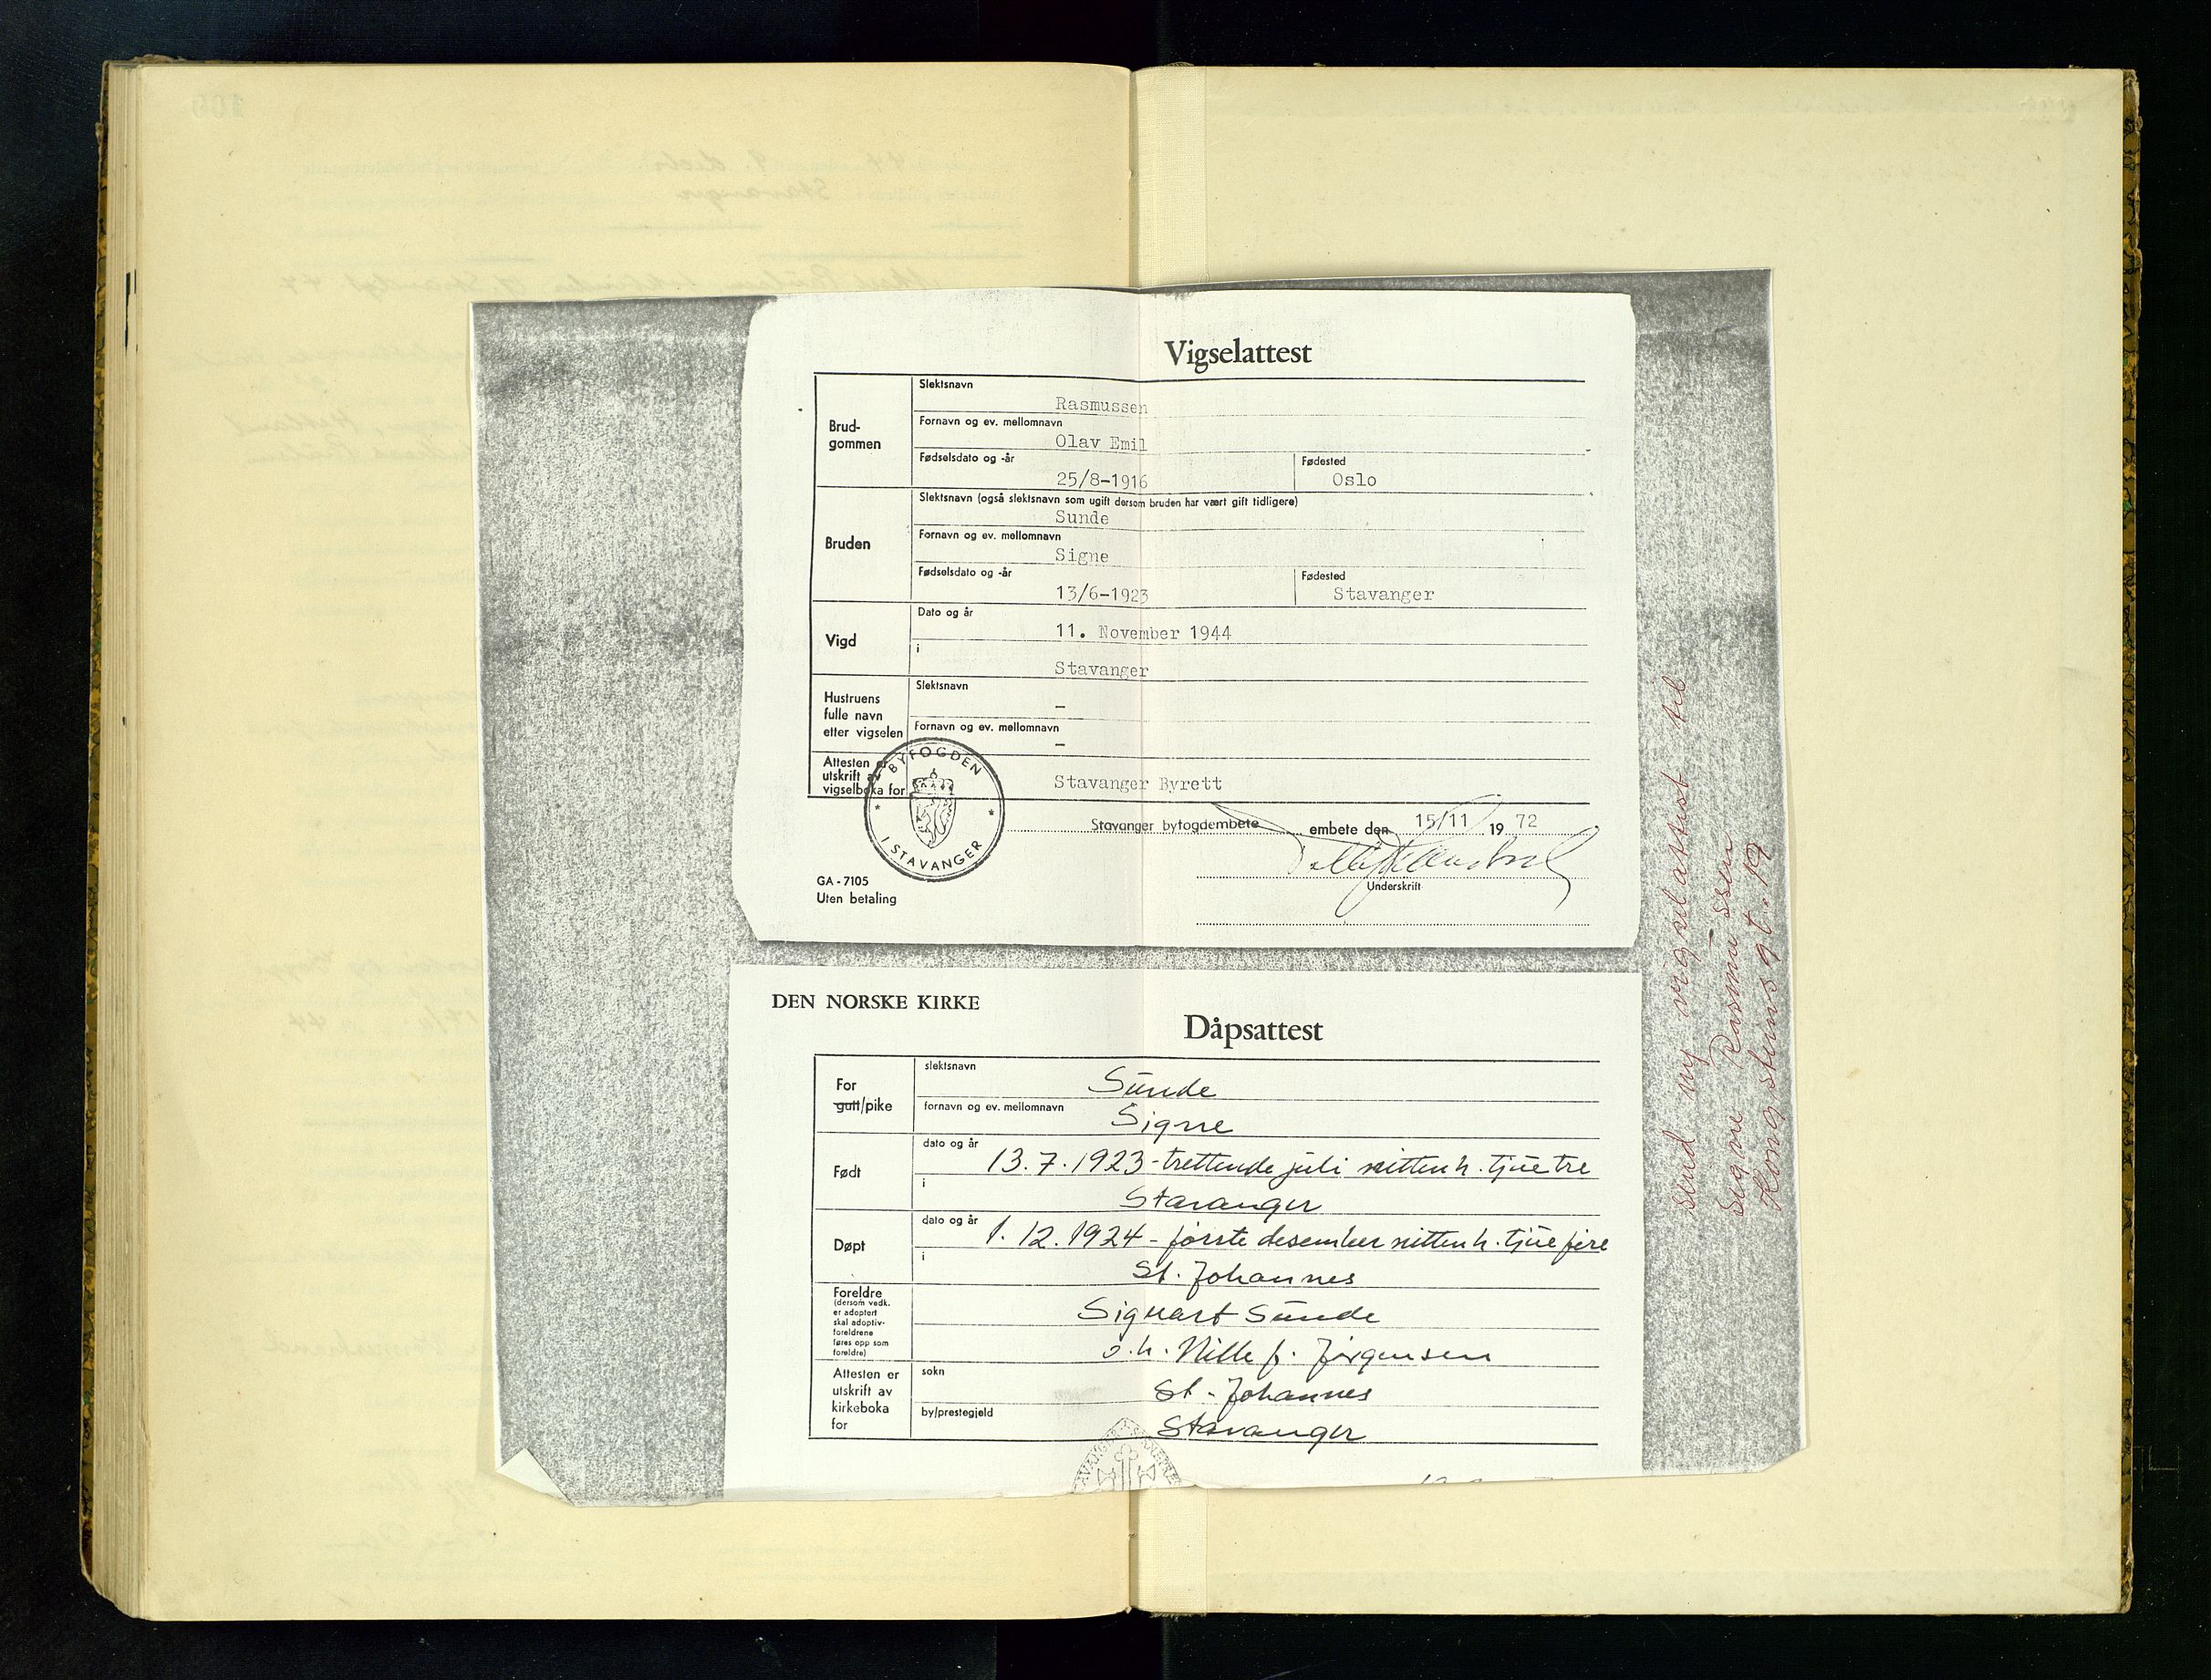 Vigselattest
Brud-
gommen
Slektsnavn
Rasmussen
Fornavn og ev. mellomnavn
Olav Emil
Fødselsdato og -år
25/8-1916
Fødested
Oslo
Bruden
Slektsnavn (også slektsnavn som ugift dersom bruden har vært gift tidligere)
Sunde
Fornavn og ev. mellomnavn
Signe
Fødselsdato og -år
13/6-1923
Fødested
Stavanger
Vigd
Dato og år
11. November 1944
i
Stavanger
Hustruens
fulle navn
etter vigselen
Slektsnavn
-
Fornavn og ev. mellomnavn
-
Attesten er
utskrift av
vigselboka for
Stavanger Byrett
BYFOGDEN
I STAVANGER
Stavanger byfogdembete embete den 15/11 19 72
Underskrift
GA - 7105
Uten betaling
DEN NORSKE KIRKE
Dåpsattest
For
gutt/pike
slektsnavn
Sunde
fornavn og ev. mellomnavn
Signe
Født
dato og år
13.7.1923 - trettende juli nitten h. tjue tre
i
Stavanger
Døpt
dato og år
1.12.1924 - første desember nitten h. tjue fire
i
St. Johannes
Foreldre
(dersom vedk.
er adoptert
skal adoptiv-
foreldrene
føres opp som
foreldre)
Sigvart Sunde
o.h. Nille f. Jørgensen
Attesten er
utskrift av
kirkeboka
for
sokn
St. Johannes
by/prestegjeld
Stavanger
send ny vigselattest til
Signe Rasmussen
Kongsteinsgt. 19